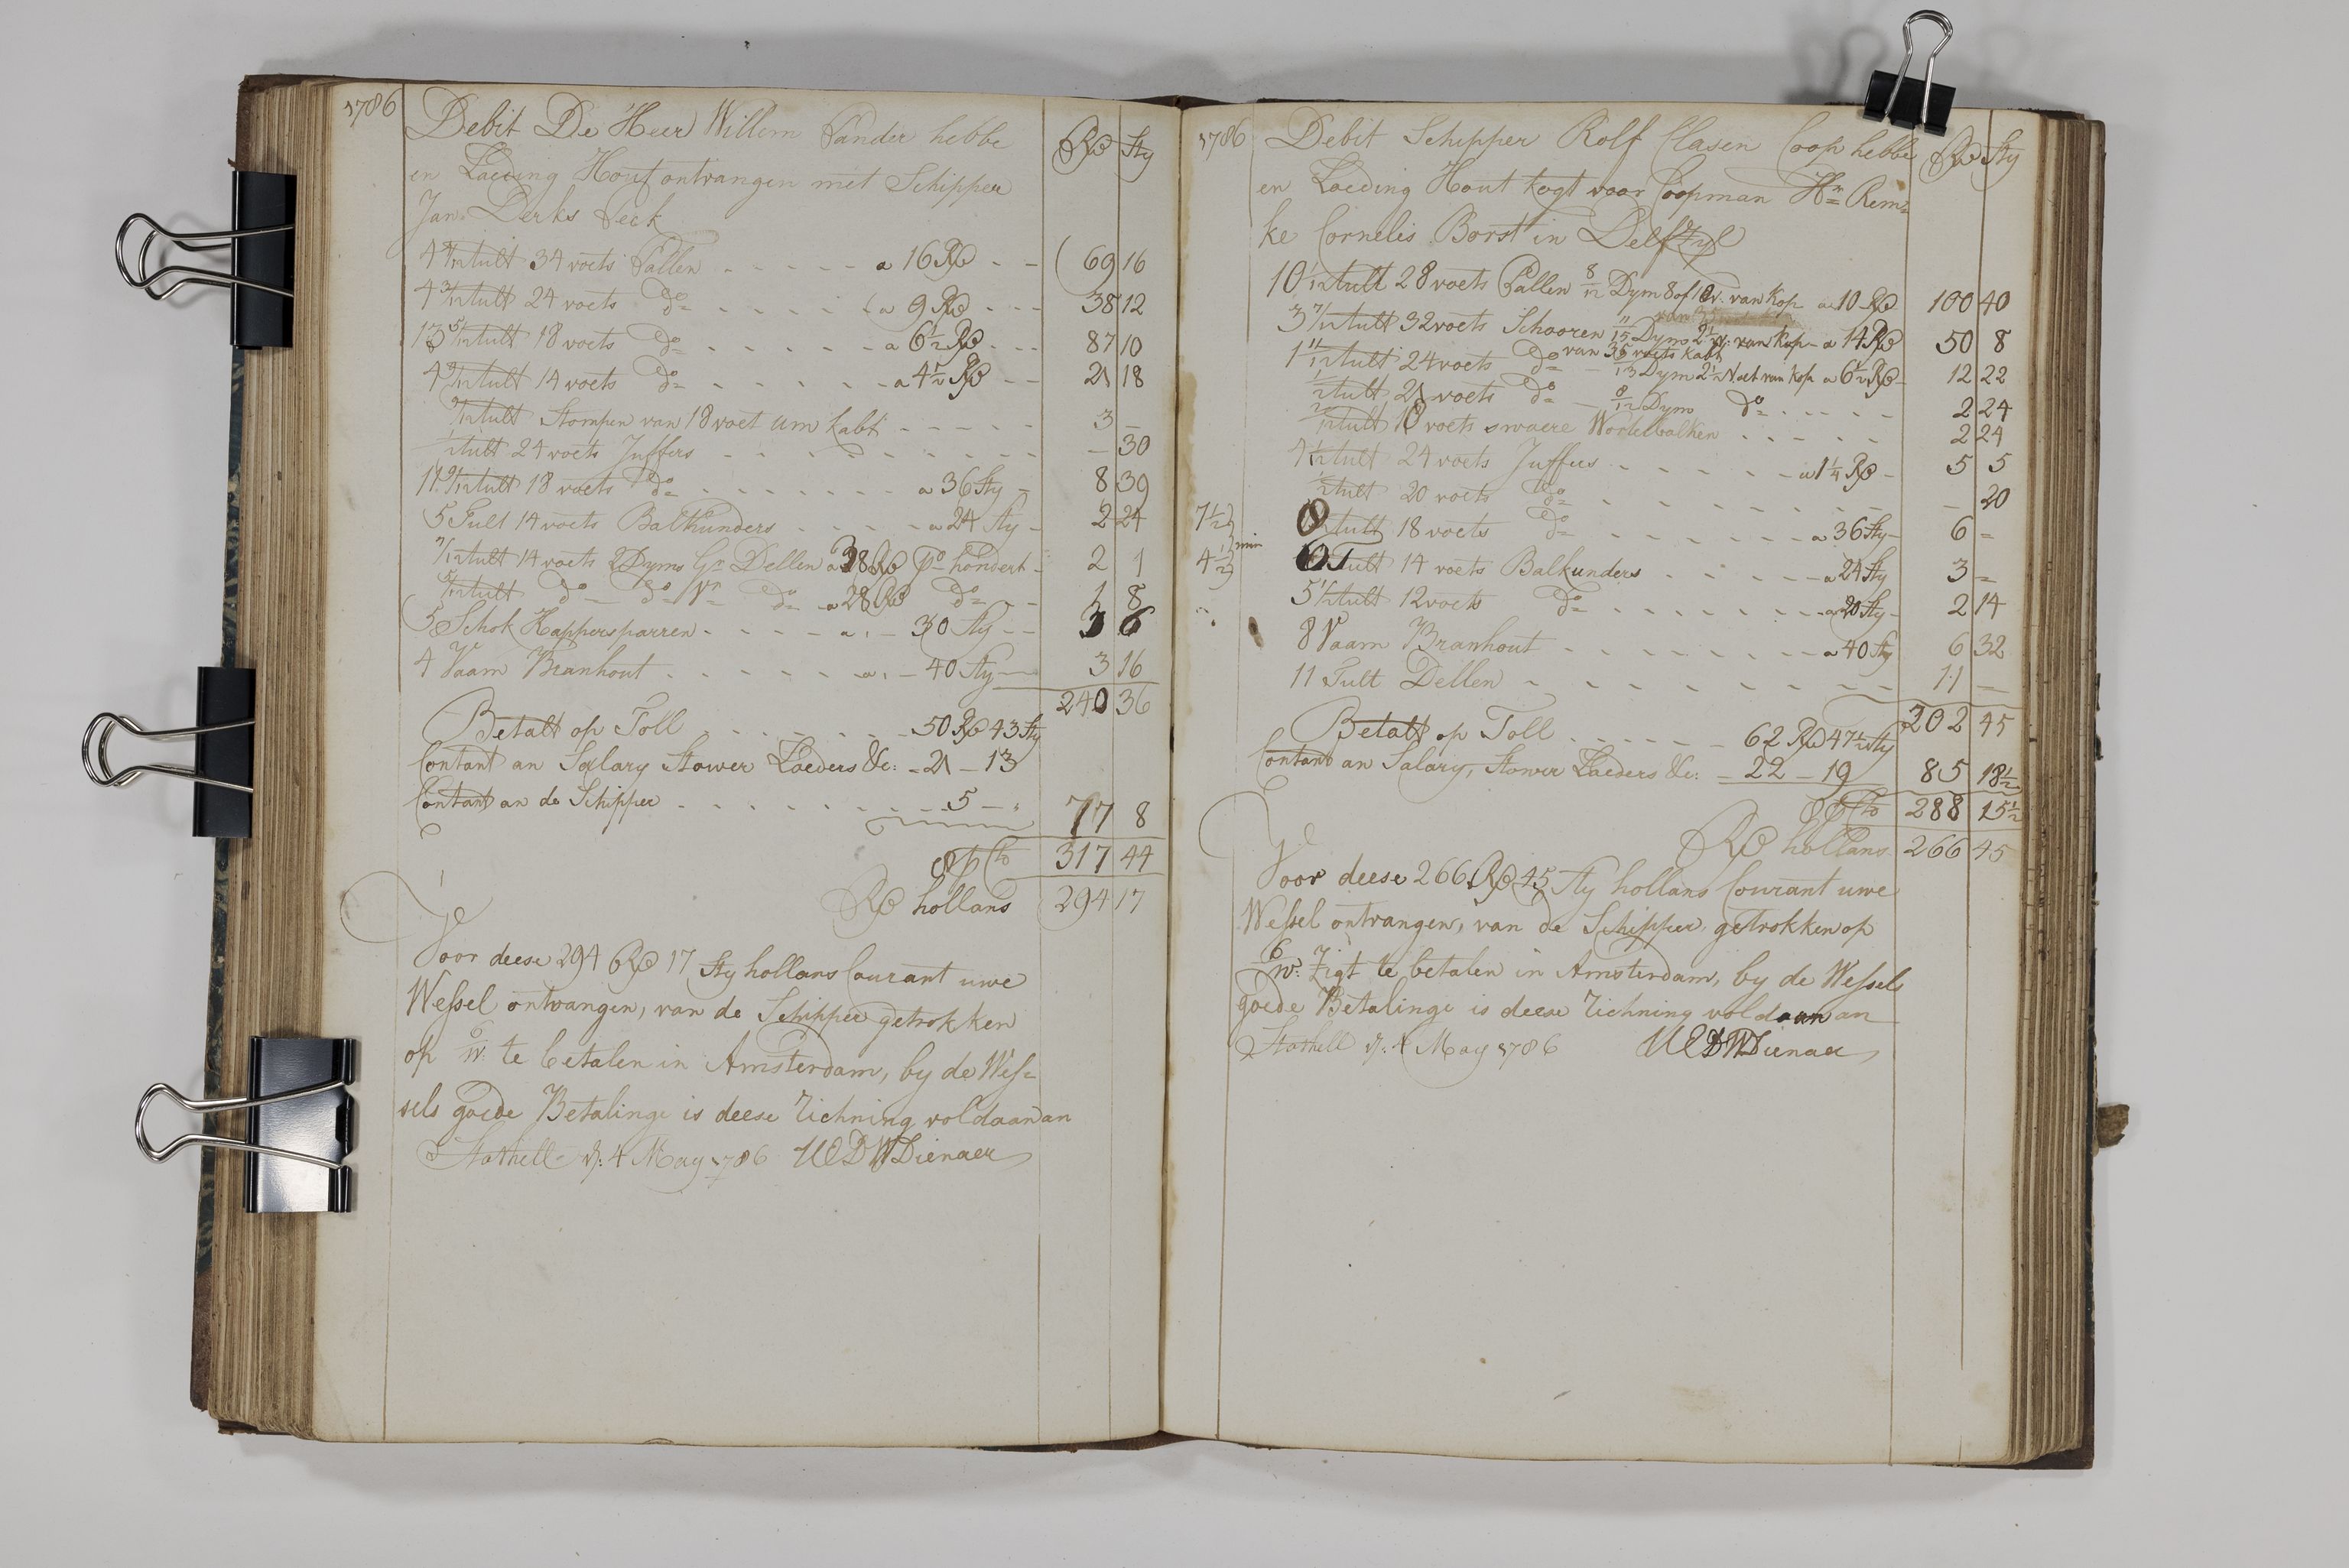 1786 Debit De Heer Willem Sander hebbe Rd Sty
en Laeding Hout ontvangen met Schipper
Jan Derks Peck
4 4/12 tult 34 voets Pallen a 16 Rd 69 16
4 3/12 tult 24 voets do a 9 Rd 38 12
13 5/12 tult 18 voets do a 6 1/2 Rd 87 10
tult 14 voets do a 4 1/2 Rd 21 18
tult Stompen van 18 voet um kabt 3 –
1/2 tult 24 voets Juffers – 30
tult 18 voets do a 36 Sty 8 39
5 Tult 14 voets Balkunders a 24 Sty 2 24
tult 14 voets 2 Dyms Gr Dellen a 38 Rd po hondert 2 1
tult do do Vr do a 28 Rd do 1 8
5 Schok Kappersparren a 30 Sty 3 6
4 Vaam Branhout a 40 Sty 3 16
240 36
Betalt op Toll 50 Rd 43 Sty
Contant an Salary Stower Laeders &c: 21 – 13
Contant an de Schipper 5 – 77 8
8 p Cto 317 44
Rd hollans 294 17
Voor deese 294 Rd 17 Sty hollans Courant uwe
Wessel ontvangen, van de Schipper getrokken
op 6/w: te betalen in Amsterdam, by de Wes=
sels goede Betalinge is deese Richning voldaan an
Stathell d: 4 May 1786 UEDWDienaer
1786 Debit Schipper Rolf Clasen Coop hebbe Rd Sty
en Laeding Hout kogt voor Coopman Hr Rem=
ke Cornelis Borst in Delfzyl
10 1/12 tult 28 voets Pallen 8/12 Dym 8 of 10 v. van kop a 10 Rd 100 40
3 7/12 tult 32 voets Schooren 11/15 Dyms 2 1/2 v. van kop a 14 Rd 50 8
van 35 voets kabt
1 11/12 tult 24 voets do 13 Dym 2 1/2 Voet van kop a 6 1/2 Rd 12 22
1/2 tult 21 voets do 8/12 Dym do 2 24
tult 18 voets swaere Wortelbalken 2 24
4 1/12 tult 24 voets Juffers a 1 1/4 Rd 5 5
1/2 tult 20 voets do – 20
7 1/2 tult 18 voets do a 36 Sty 6 –
min
4 1/2 Tult 14 voets Balkunders a 24 Sty 3 –
5 1/2 tult 12 voets do a 20 Sty 2 14
8 Vaam Branhout a 40 Sty 6 32
11 Tult Dellen 11 –
202 45
Betalt op Toll 62 Rd 47 1/2 Sty
Contant an Salary, Stower Laeders &c: 22 – 19 85 18 1/2
8 p Cto 288 15 1/2
Rd hollans 266 45
Voor deese 266 Rd 45 Sty hollans Courant uwe
Wessel ontvangen, van de Schipper, getrokken op
6/w: Zigt te betalen in Amsterdam, by de Wessels
goede Betalinge is deese Richning voldaan an
Stathell d: 4 May 1786 UEDWDienaer